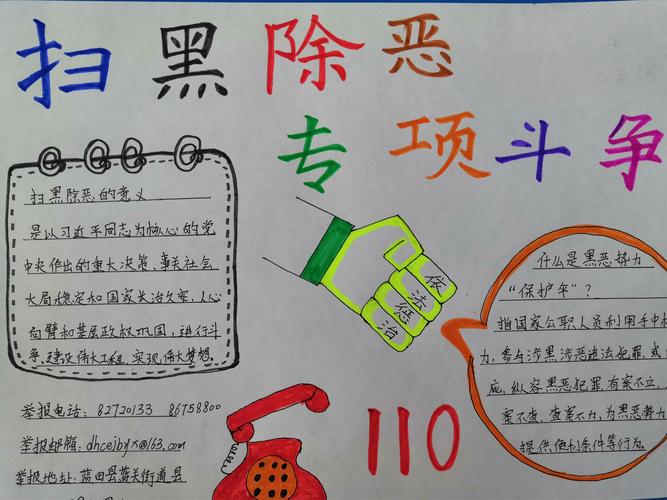 扫黑除恶
专项斗争
扫黑除恶的意义
是以习近平同志为核心的党
中央作出的重大决策,事关社会
大局稳定和国家长治久安,人心
向背和基层政权巩固,进行斗
争,建设伟大工程,实现伟大梦想.
依
法
惩
治
什么是黑恶势力
"保护伞"?
指国家公职人员利用手中权
力,参与涉黑涉恶违法犯罪,或
庇,纵容黑恶犯罪,有案不立,
案不查,查案不力,为黑恶势力
提供便利条件等行为.
举报电话: 82720133 86758800
举报邮箱:dhcejbyx@163.com
举报地址:蓝田县蓝关街道县
110